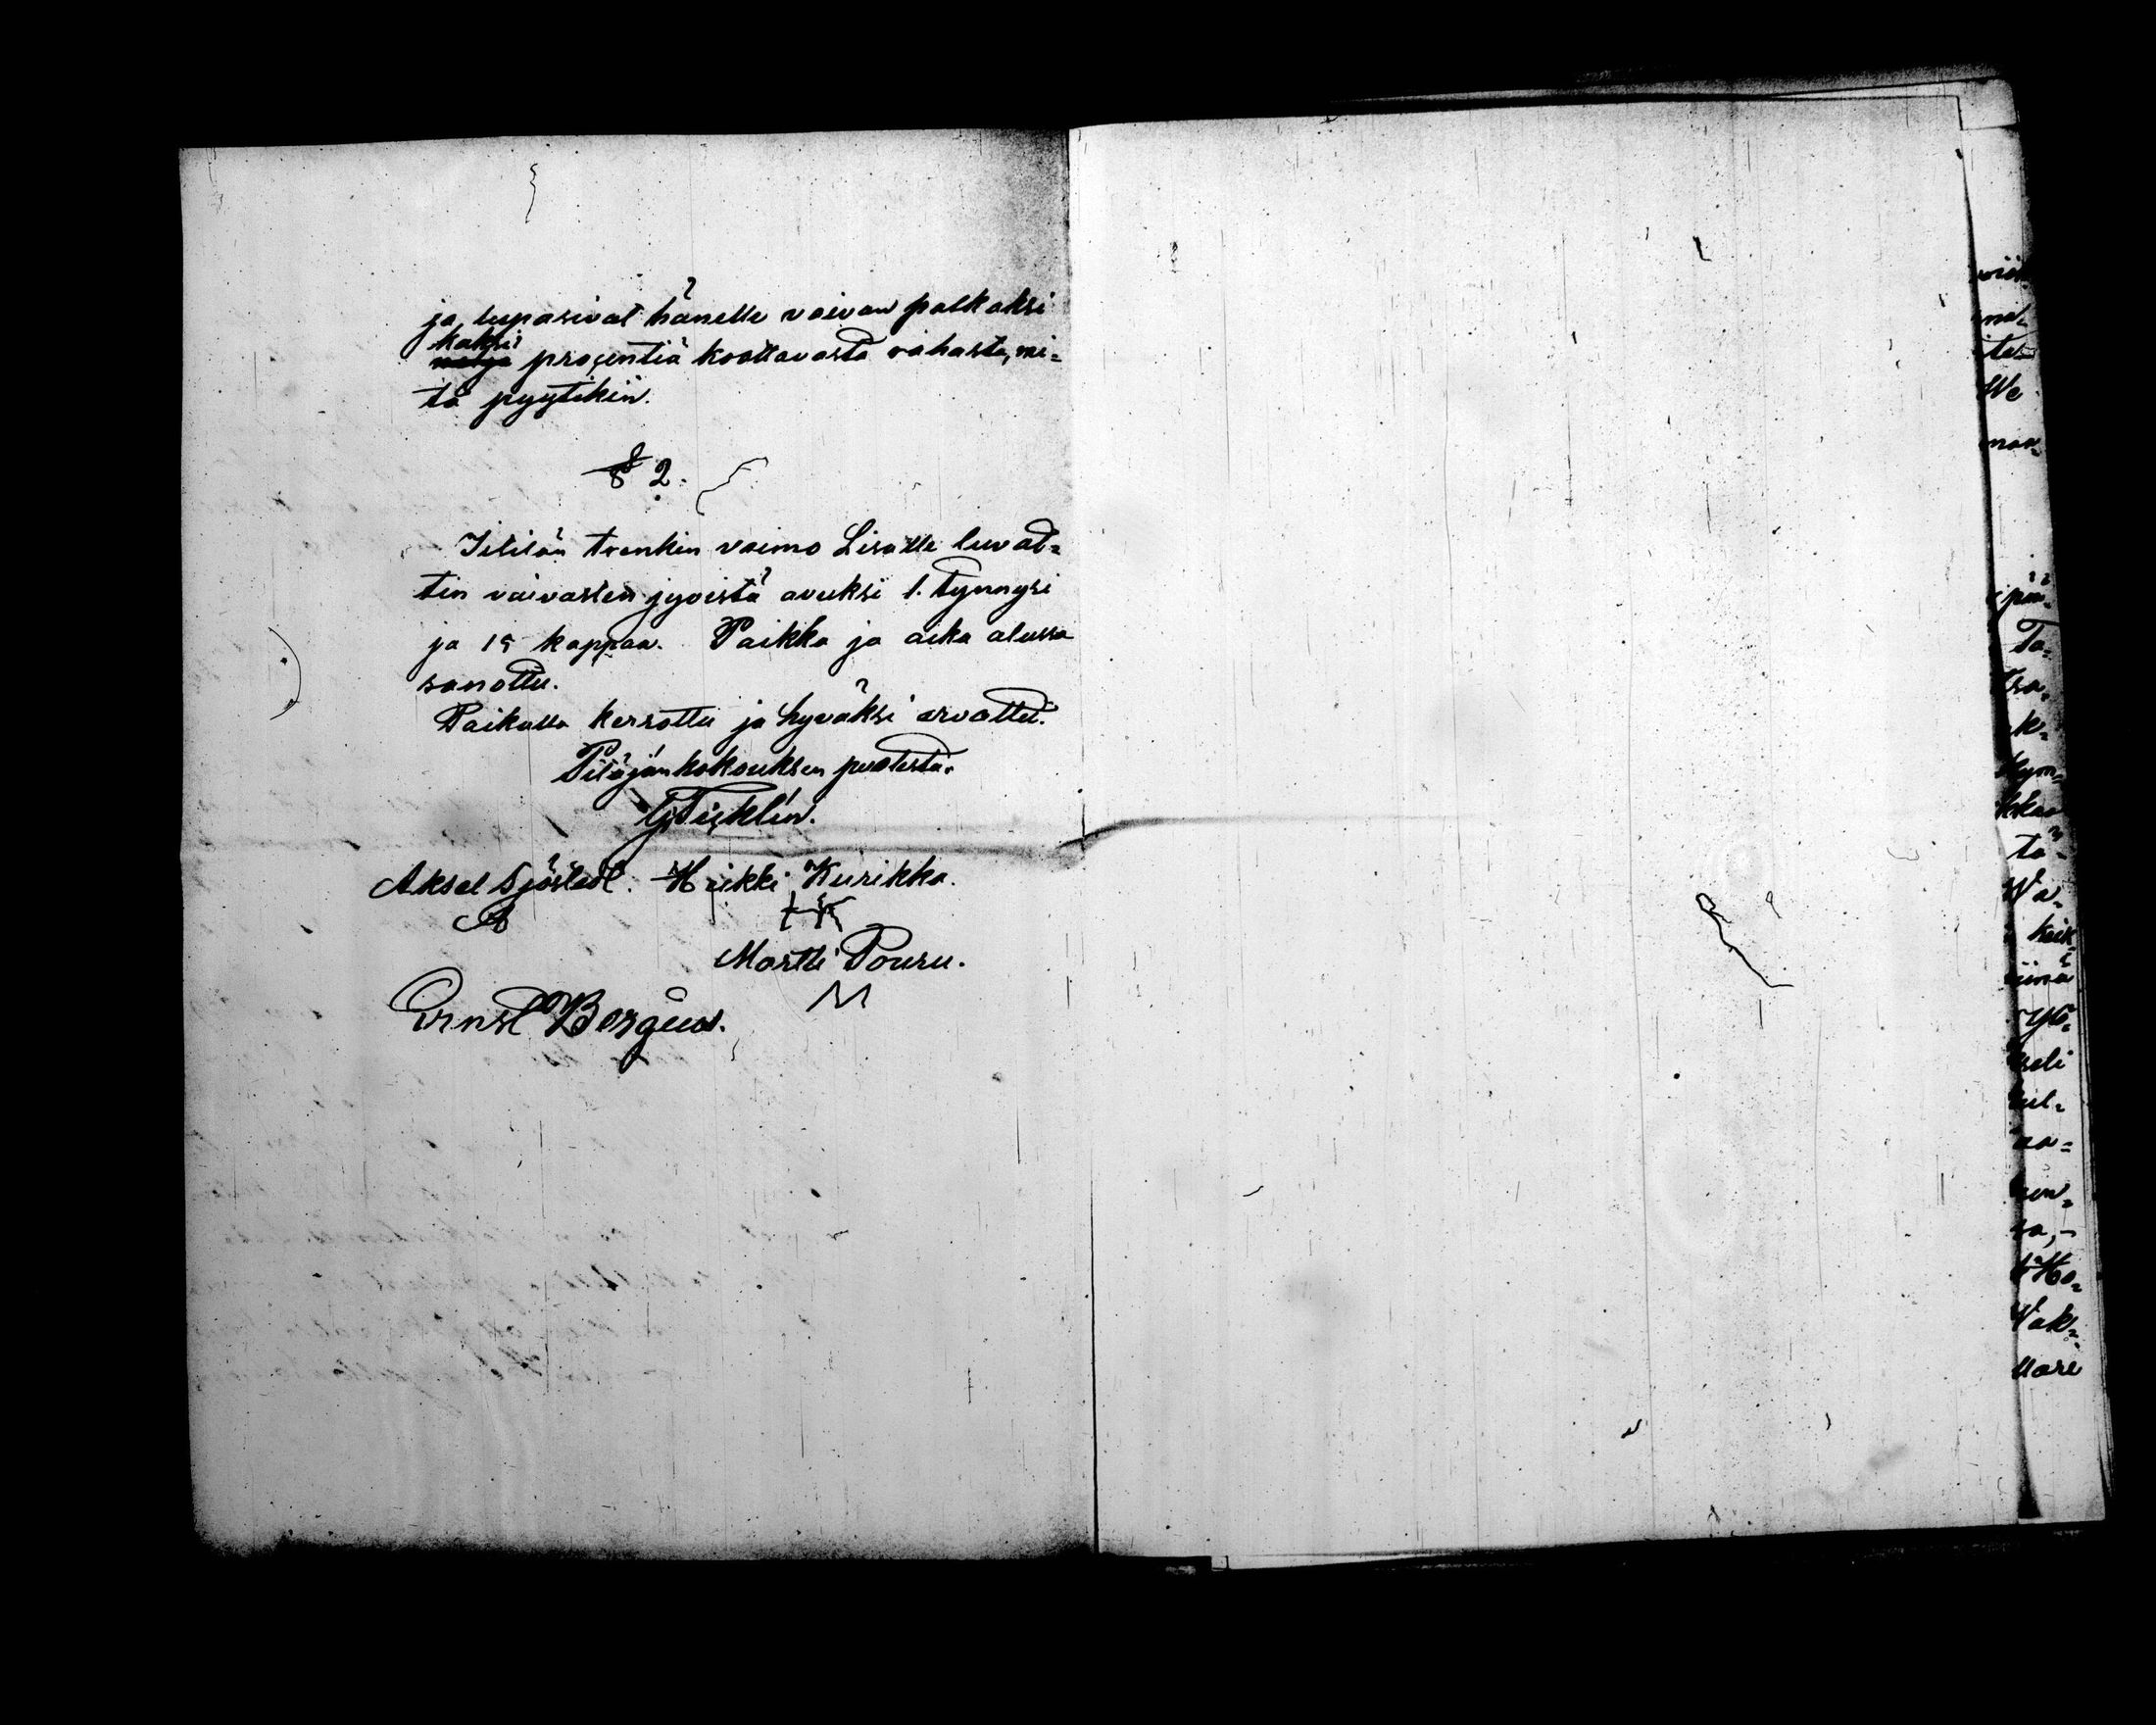 ja lupasivat hänelle vaivan palkaksi
kaksi
neljä proçentiä koottavasta rahasta, mi=
tä pyytikin.
§ 2.
trenkin vaimo Lisalle luvat=
tin vaivasten jyvistä avuksi 1. tynnyri
ja 15 kappaa. Paikka ja aika alussa
sanottu.
Paikassa kerrottu ja hyväksi arvattu.
Pitäjänkokouksen puolesta.
Aksel Sjöstedt. Heikki Kurikka.
Martti Pouru.
M
Ernst Bergius.
We
maa=
Ta=
ta
Wa=
seli
Wak=